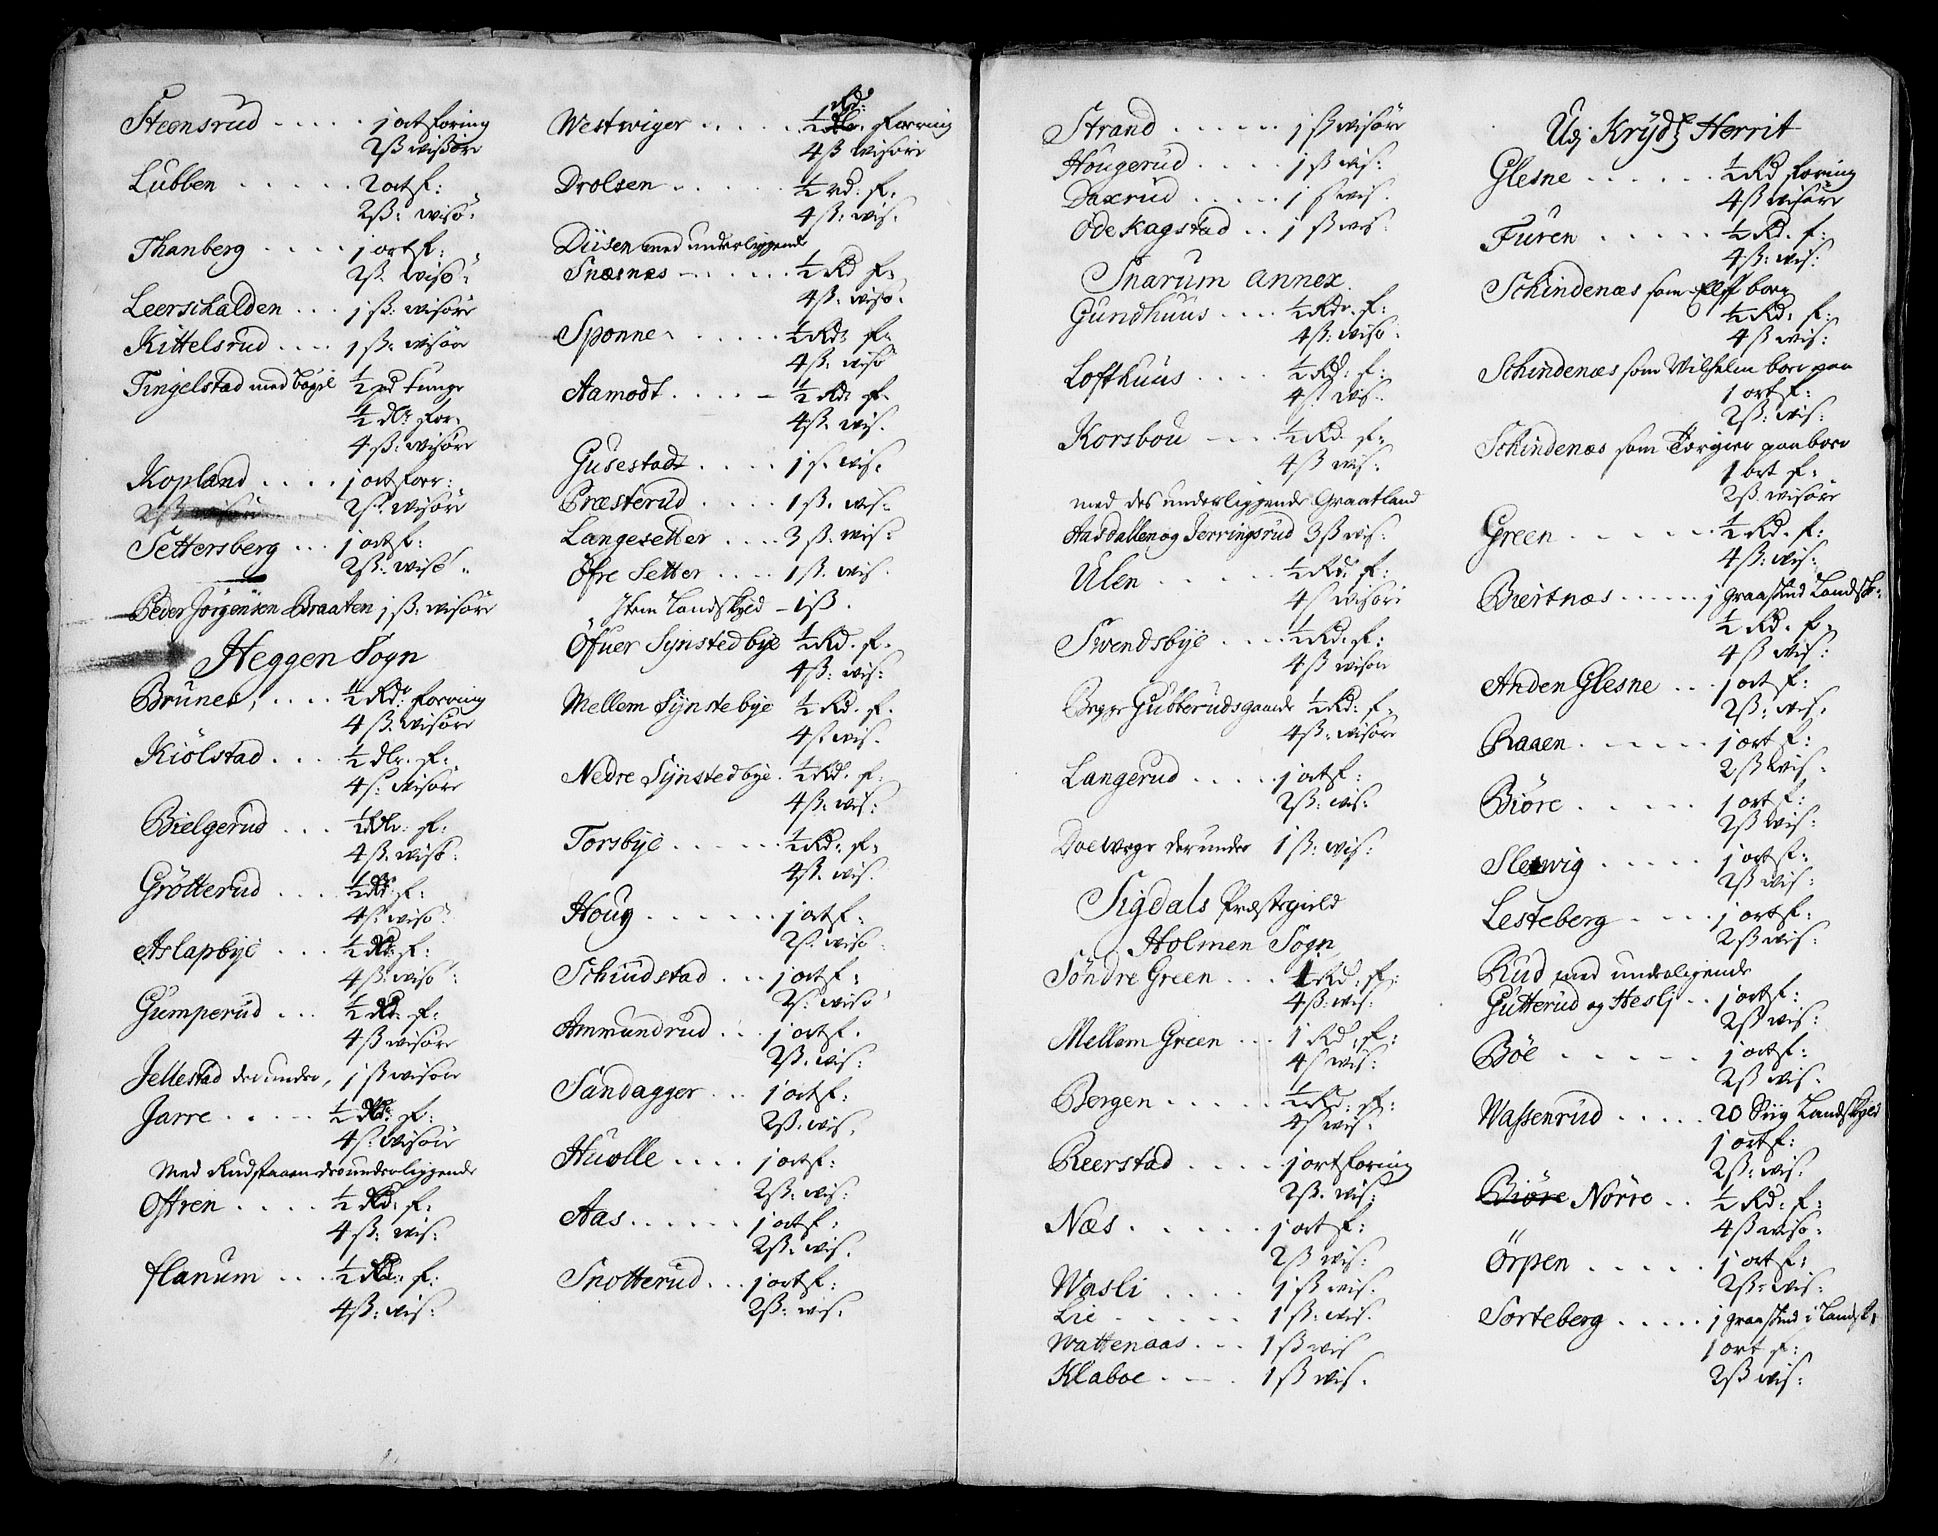 Steensrud . . . . . 1 ort foring
2 ß wisöre
Lubben . . . . . 2 ort f:
2 ß: wisö:
Thanberg . . . . 1 ort f:
2 ß. wisö:
Leerschalden . . . 1 ß. wisöre
Kittelsrud . . . . 1 ß: wisöre
Tingelstad med Bögil ½ pd tunge
½ dlr for:
4 ß: wisöre
Kopland . . . . 1 ort forr:
2 ß. wisöre
Settersberg . . . 1 ort f:
2 ß: wisö:
Peder Jörgensen Braaten 1 ß: wisöre
Heggen Sogn
Brunes, . . . . ½ Rdr forring
4 ß. wisöre
Kiölstad . . . . ½ dlr. f:
4 ß: wisöre
Bielgerud . . . ½ Rdlr: f:
4 ß. wisö:
Grötterud . . . ½ Rd: f:
4 ß. wisö:
Aslapbye . . . ½ Rd: f:
4 ß: wisö:
Gumperud . . . ½ Rd: f:
4 ß wisöre
Jellestad derunder, 1 ß wisöre
Jarre . . . . ½ Rd: f:
4 ß wisöre
Med Rudstaaen derunderliggende
Oftren . . . . ½ Rd: f:
4 ß: wis:
flanum . . . ½ Rd: f:
4 ß: wis:
Westwiger . . . . ½ Rd: forring
4 ß wisöre
Drolsen . . . . . ½ rd: f:
4 ß: wis:
Diisen med underliggende
Snæsnæs . . . . ½ Rd f:
4 ß: wisö.
Sponne . . . . . ½ Rdr f:
4 ß: wisö
Aamodt . . . . ½ Rdr f.
4 ß. wis.
Gusestadt . . . . 1 ß. wis:
Præsterud . . . . 1 ß. wis:
Længesetter . . . . 3 ß. wis:
Öfre Setter . . . . 1 ß. wis.
Item Landskyld – 1 ß.
Öfuer Synstedbye ½ Rd. f.
4 ß: wis:
Mellem Synstebye ½ Rd. f.
4 ß. wis.
Nedre Synstedbye . ½ Rd. f:
4 ß: wis:
Torsbye . . . . . . ½ Rd: f:
4 ß. wis.
Houg . . . . . . 1 ort f:
2 ß. wisö
Schiudstad . . . 1 ort f:
2 ß: wisö
Ammundrud . . . 1 ort f.
2 ß. wis:
Sandagger . . . 1 ort f:
2 ß. wis.
Huolle . . . . 1 ort f:
2 ß: wis:
Aas . . . . . . 1 ort f:
2 ß: wis.
Snotterud . . . 1 ort f:
2 ß: wis.
Strand . . . . . . 1 ß wisöre
Hougerud . . . . 1 ß wis:
Daxrud . . . . . 1 ß wis.
Öde Kagstad . . 1 ß wis:
Snarum Annex.
Gundhuus . . . . ½ Rdr. f:
4 ß: wisö:
Lofthuus . . . . ½ Rd: f:
4 ß. wis.
Korsbou . . . ½ Rd. f:
4 ß wis:
med des underliggende Graatland
Aasdallen og Jerringsrud 3 ß wis:
Ulen . . . . . . ½ Rd: f:
4 ß wisöre
Swendsbye . . . . ½ Rd: f:
4 ß wisöre
Begge Gubberudsgaarde ½ Rd: f:
4 ß: wisöre
Langerud . . . . . 1 ort f:
2 ß: wis:
Doewege derunder 1 ß: wis:
Sigdals Præstegield
Holmen Sogn
Söndre Green . . . 1 Rd: f:
4 ß: wis:
Mellem Green . . . 1 Rd: f:
4 ß wis:
Bergen . . . . . ½ Rd: f:
4 ß wis.
Reerstad . . . . . 1 ort foring
2 ß. wis:
Næs . . . . . . 1 ort f:
2 ß wis:
Wasli . . . . . 1 ß wis:
Lie . . . . . . 1 ß: wis.
Wattenaas . . . 1 ß wis
Klaboe . . . . 1 ß wis.
Udj Kryds Herrit
Glesne . . . . . . ½ Rd foring
4 ß wisöre
Furen . . . . . ½ Rd. f:
4 ß: wis:
Schindenæs som Elff boer
½ Rd: f:
4 ß wis:
Schindenæs som Wilhelm boer paa
1 ort f:
2 ß: wis:
Schindenæs som Torgier paaboer
1 ort f:
2 ß wisöre
Green . . . . . . ½ Rd. f:
4 ß: wis:
Biertnæs . . . . . 1 graaskind Landsk:
½ Rd. f:
4 ß wis:
Anden Glesne . . . 1 ort f:
2 ß: wis.
Raaen . . . . . . 1 ort f:
2 ß wis:
Biöre . . . . . 1 ort f:
2 ß wis:
Sletwig . . . . . 1 ort f:
2 ß wis:
Lesteberg . . . . 1 ort f:
2 ß wis:
Rud med underligende
Gutterud og Heslj . . 1 ort f:
2 ß wis:
Böe . . . . . . 1 ort f:
2 ß wis.
Wassenrud . . . . . 20 Siig Landskyld
1 ort f:
2 ß: wis.
Biöre Nörre . . ½ Rd: f:
4 ß wisö:
Örpen . . . . . . 1 ort f:
2 ß: wis:
Sorteberg . . . . . 1 graaskind i Landsk:
1 ort f:
2 ß wis: